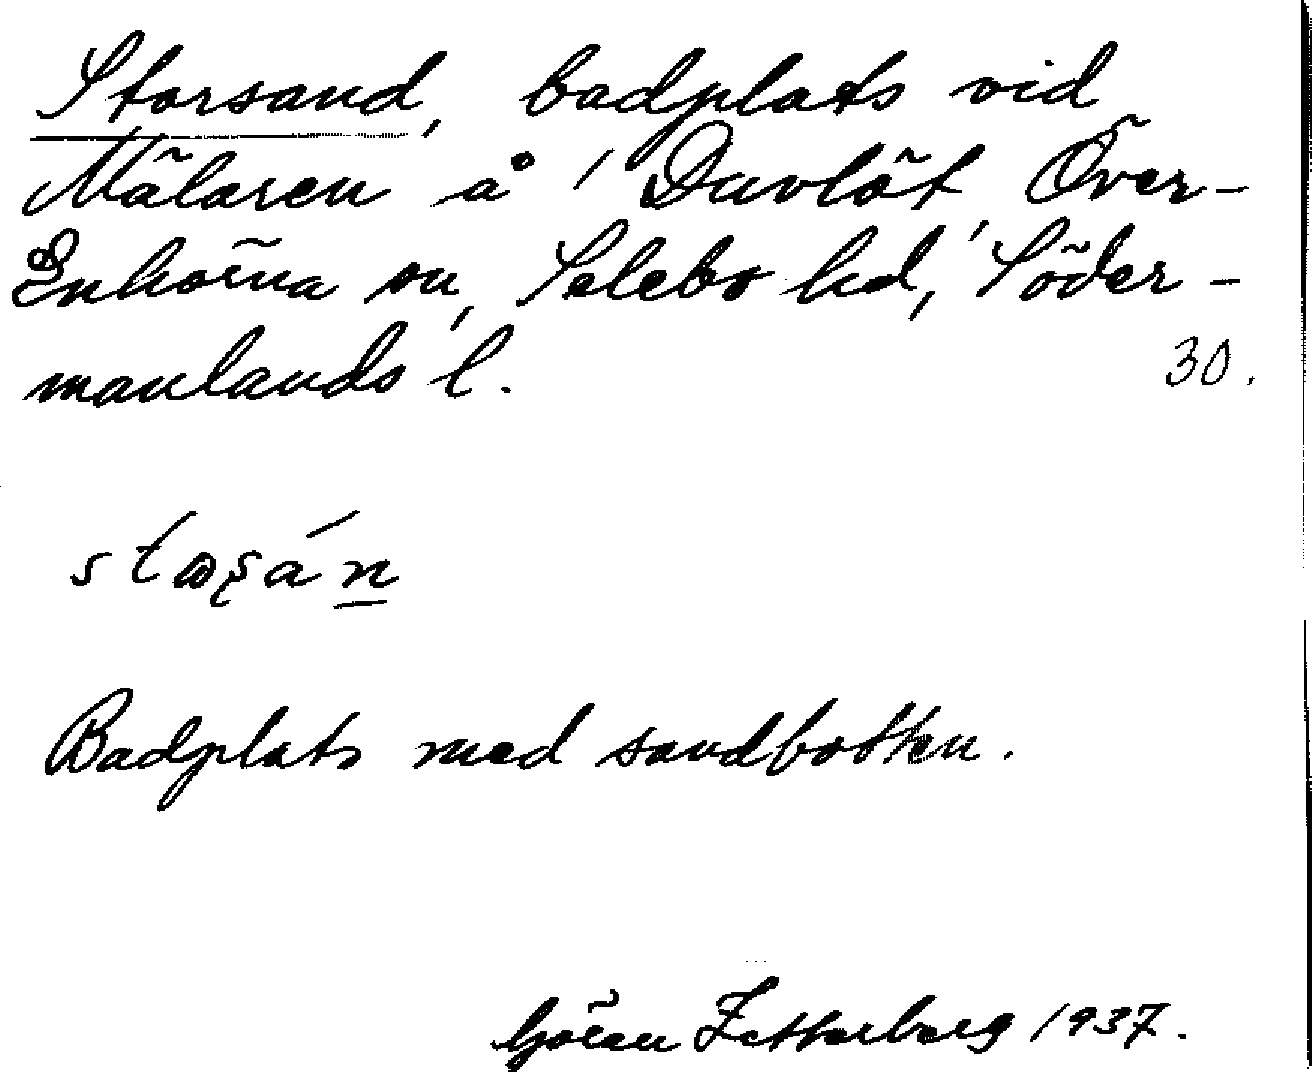 Storsand, badplats vid
Mälaren å Duvlöt, Över-
Enhörna sn, Selebo hd, Söder-
manlands l.
30.
Badplats med sandbotten.
Gören Zetterberg 1937.